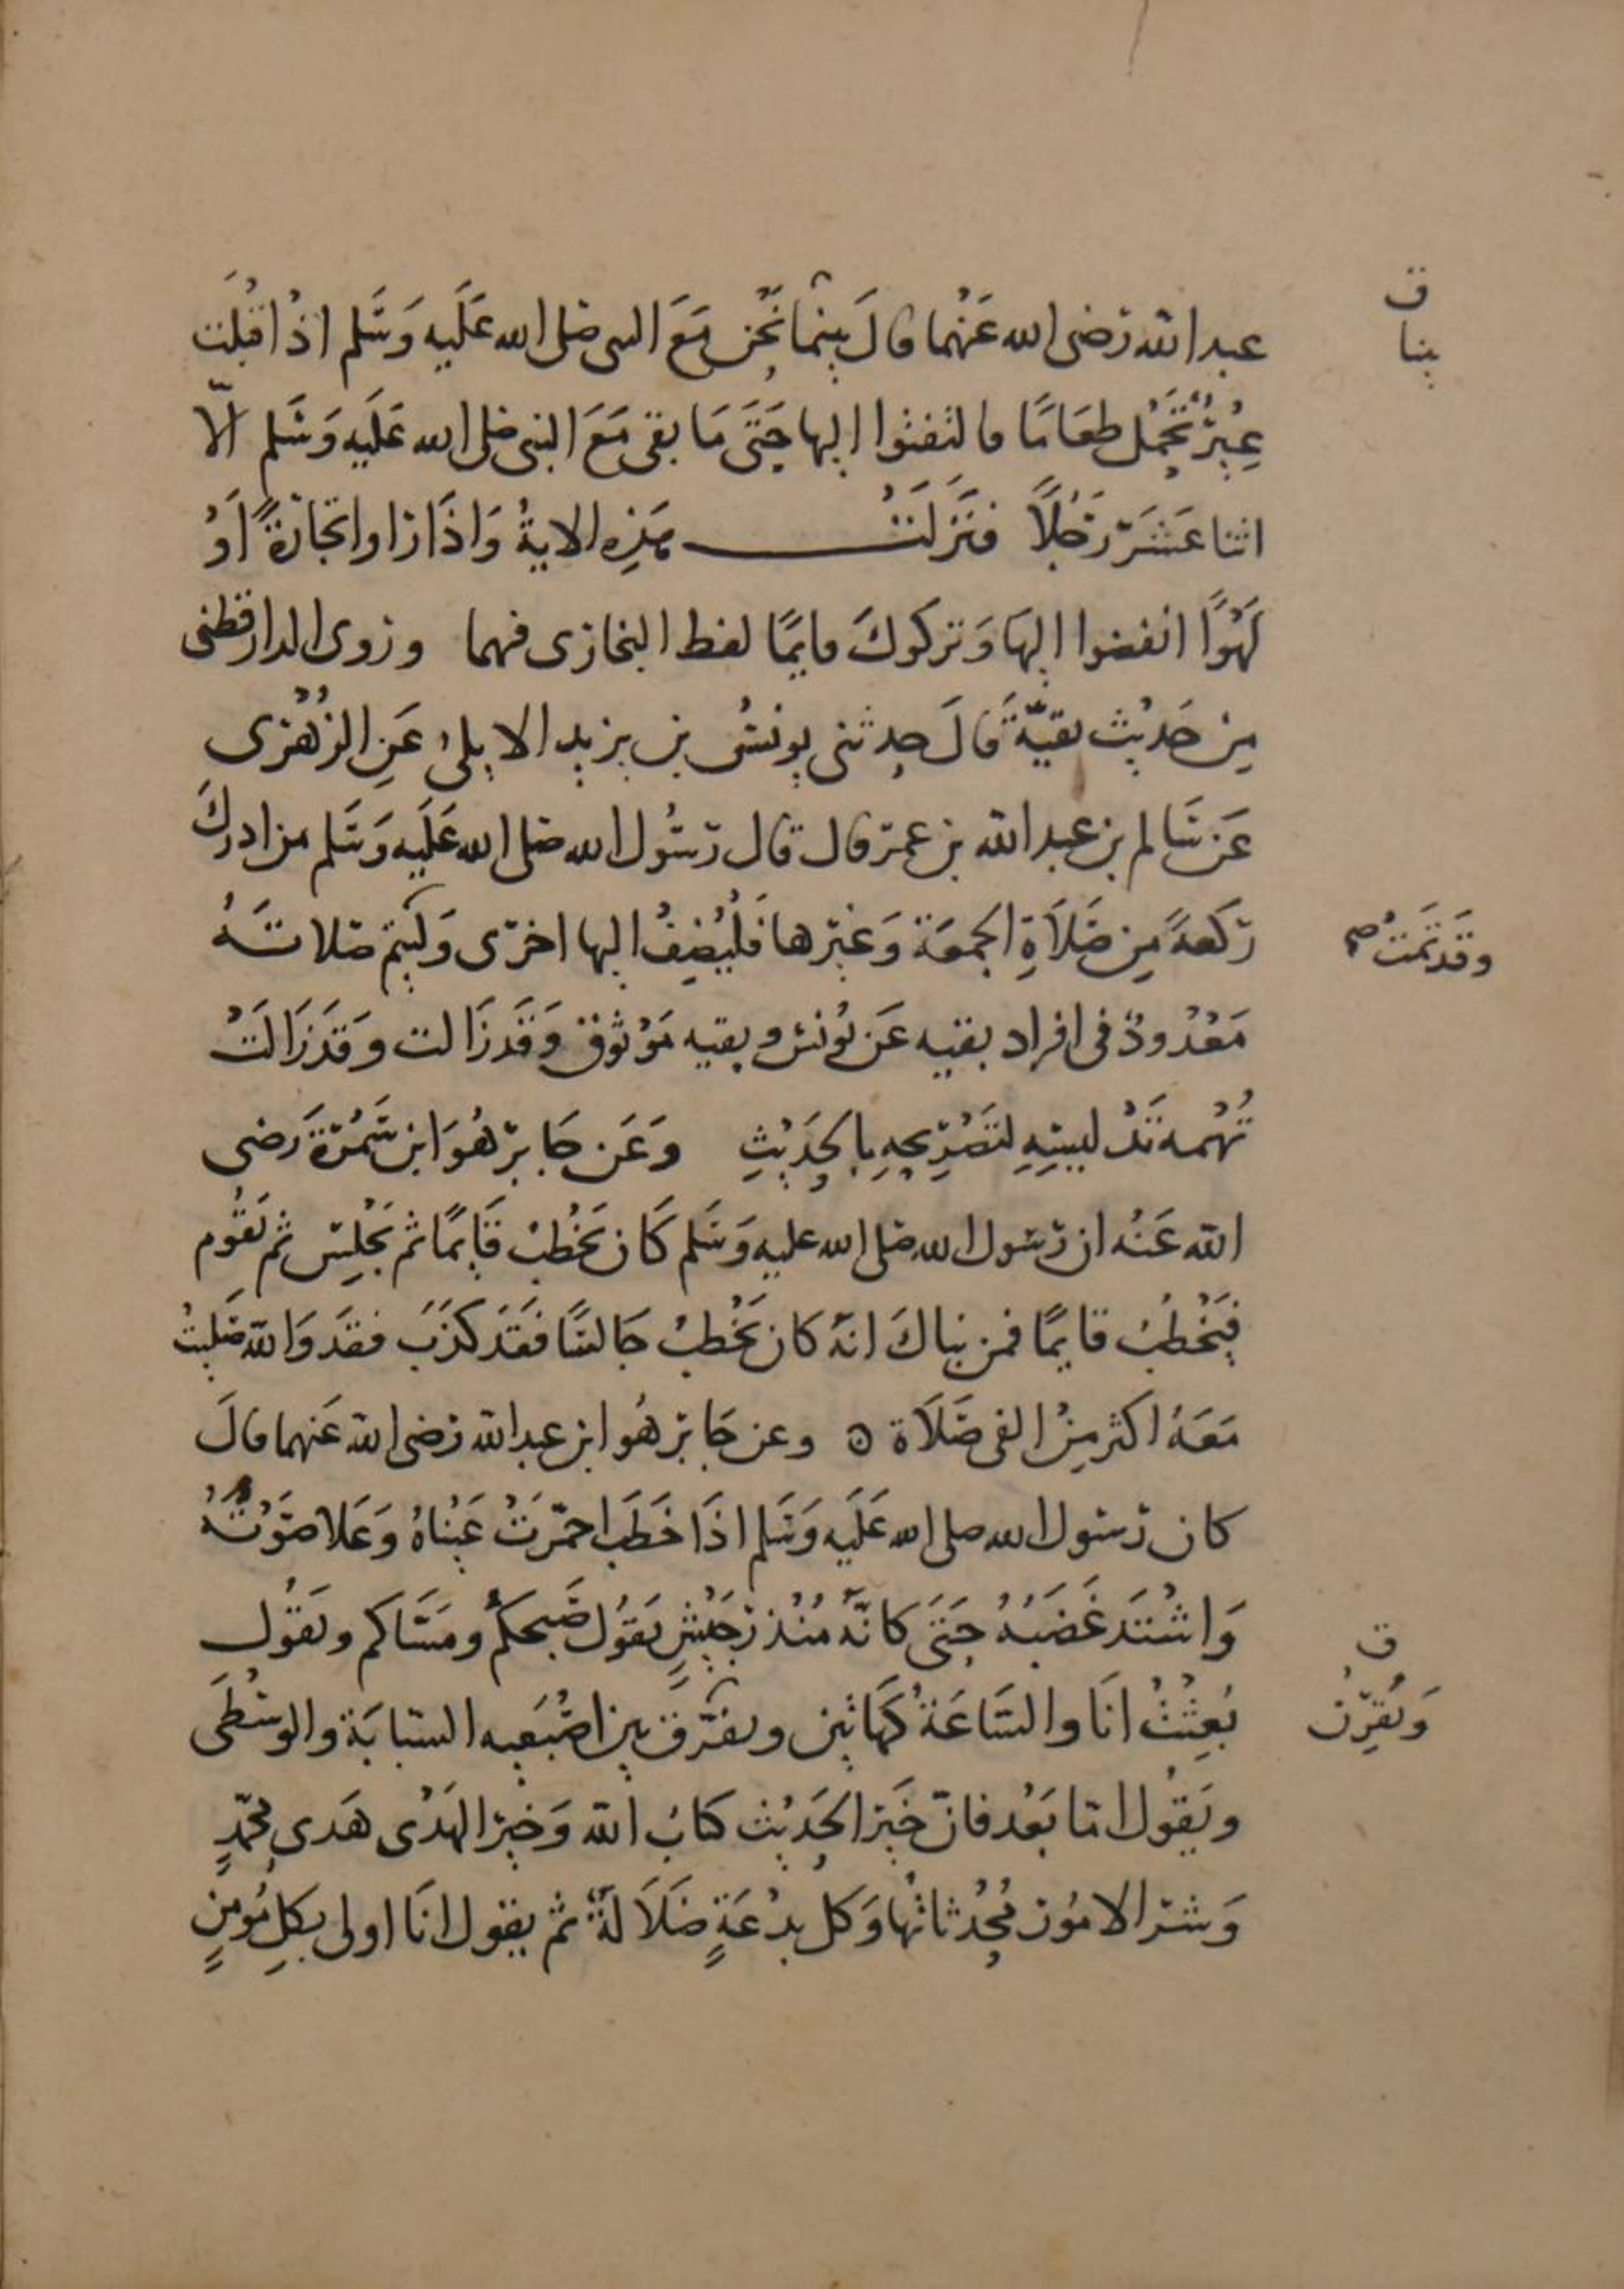 عبد الله رضى الله عَنْهما قالَ بينما نَحْن مَعَ النبى صلى الله عَلَيه وَسَّلم اذْ اقْبَلَت
عِيْرٌ تَحْمِل طعَامًا فالتفتوا اليها حَتَّى مَا بقى مَعَ النبى صلى الله عَلَيه وَسَّلم الّا
اثنا عَشَرَ رَجُلًا فنَزَلَتْ هَذِه الايةُ وَاذَا راوا تجَارَةً اَوْ
لَهْوًا انفضوا اليهَا وَتركوكَ قايمًا لفظ البخارى فيهما وروى الدارقطنى
مِنْ حَدِيْث بقيّةَ قَالَ حدثنى يونسُ بن يزيد الايلى عَنِ الزُهْرى
عَن سَالم بن عبد الله بن عمر قال قال رَسُول الله صلى الله عَلَيه وَسَّلم من ادركَ
ركعةً مِن صَلَاةِ الجمعَة وَغيْرها فَلْيُضِفْ اليها اخرى وَليتم صلاتَهُ
مَعْدُودٌ فى افراد بقيه عَن يُونس وبقيه مَوْثوق وَقَد زَالت وقَد زَالَتْ
تُهْمه تَدْليسِهِ لتَصْرِيحِهِ بالحَدِيْثِ وَعَن جَابر هُوَ ابن سَمُرَةَ رَضى
الله عَنْه ان رَسُول الله صلى الله عليه وَسَلم كَان يَخْطبُ قَايمًا ثم يَجْلِس ثم يَقُوم
فيَخْطُبُ قايمًا فمن نباكَ انهُ كان يَخْطبُ جَالسًا فقَد كَذَبَ فقَد وَالله صَليتُ
مَعَهُ اكثر مِنْ الفى صَلَاة ۞ وعن جَابر هُو ابن عبد الله رضى الله عَنهما قالَ
كان رَسُول الله صلى الله عَلَيه وَسَلم اذَا خَطَب احمَّرتْ عَيْنَاهُ وَعَلا صَوْتُهُ
وَاشْتَدَ غَضَبُهُ حَتَى كانّهُ مُنْذر جَيْشٍ يَقوُل صَّبحكمُ ومسَّاكم ويَقُول
بُعِثْتُ انَا والسَّاعَةُ كَهاتين ويفَرّق بين اصْبعَيه السبابَة والوسْطَى
ويَقُول امّا بَعْد فانّ خَيْرَ الحَدِيْث كتابُ الله وَخيْر الهَدْى هَدى محمّدٍ
وَشر الامُور مُحْدثاتُها وَكل بدْعَةٍ ضَلَالَةٌ ثم يقول انَا اولى بكلِ مُومنٍ
ق
بينا
وقَد تَمَتْ صح
ق
وَيُقرِنُ